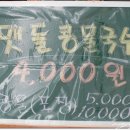 맷돌콩물국수
4,000원
5,000
10,000